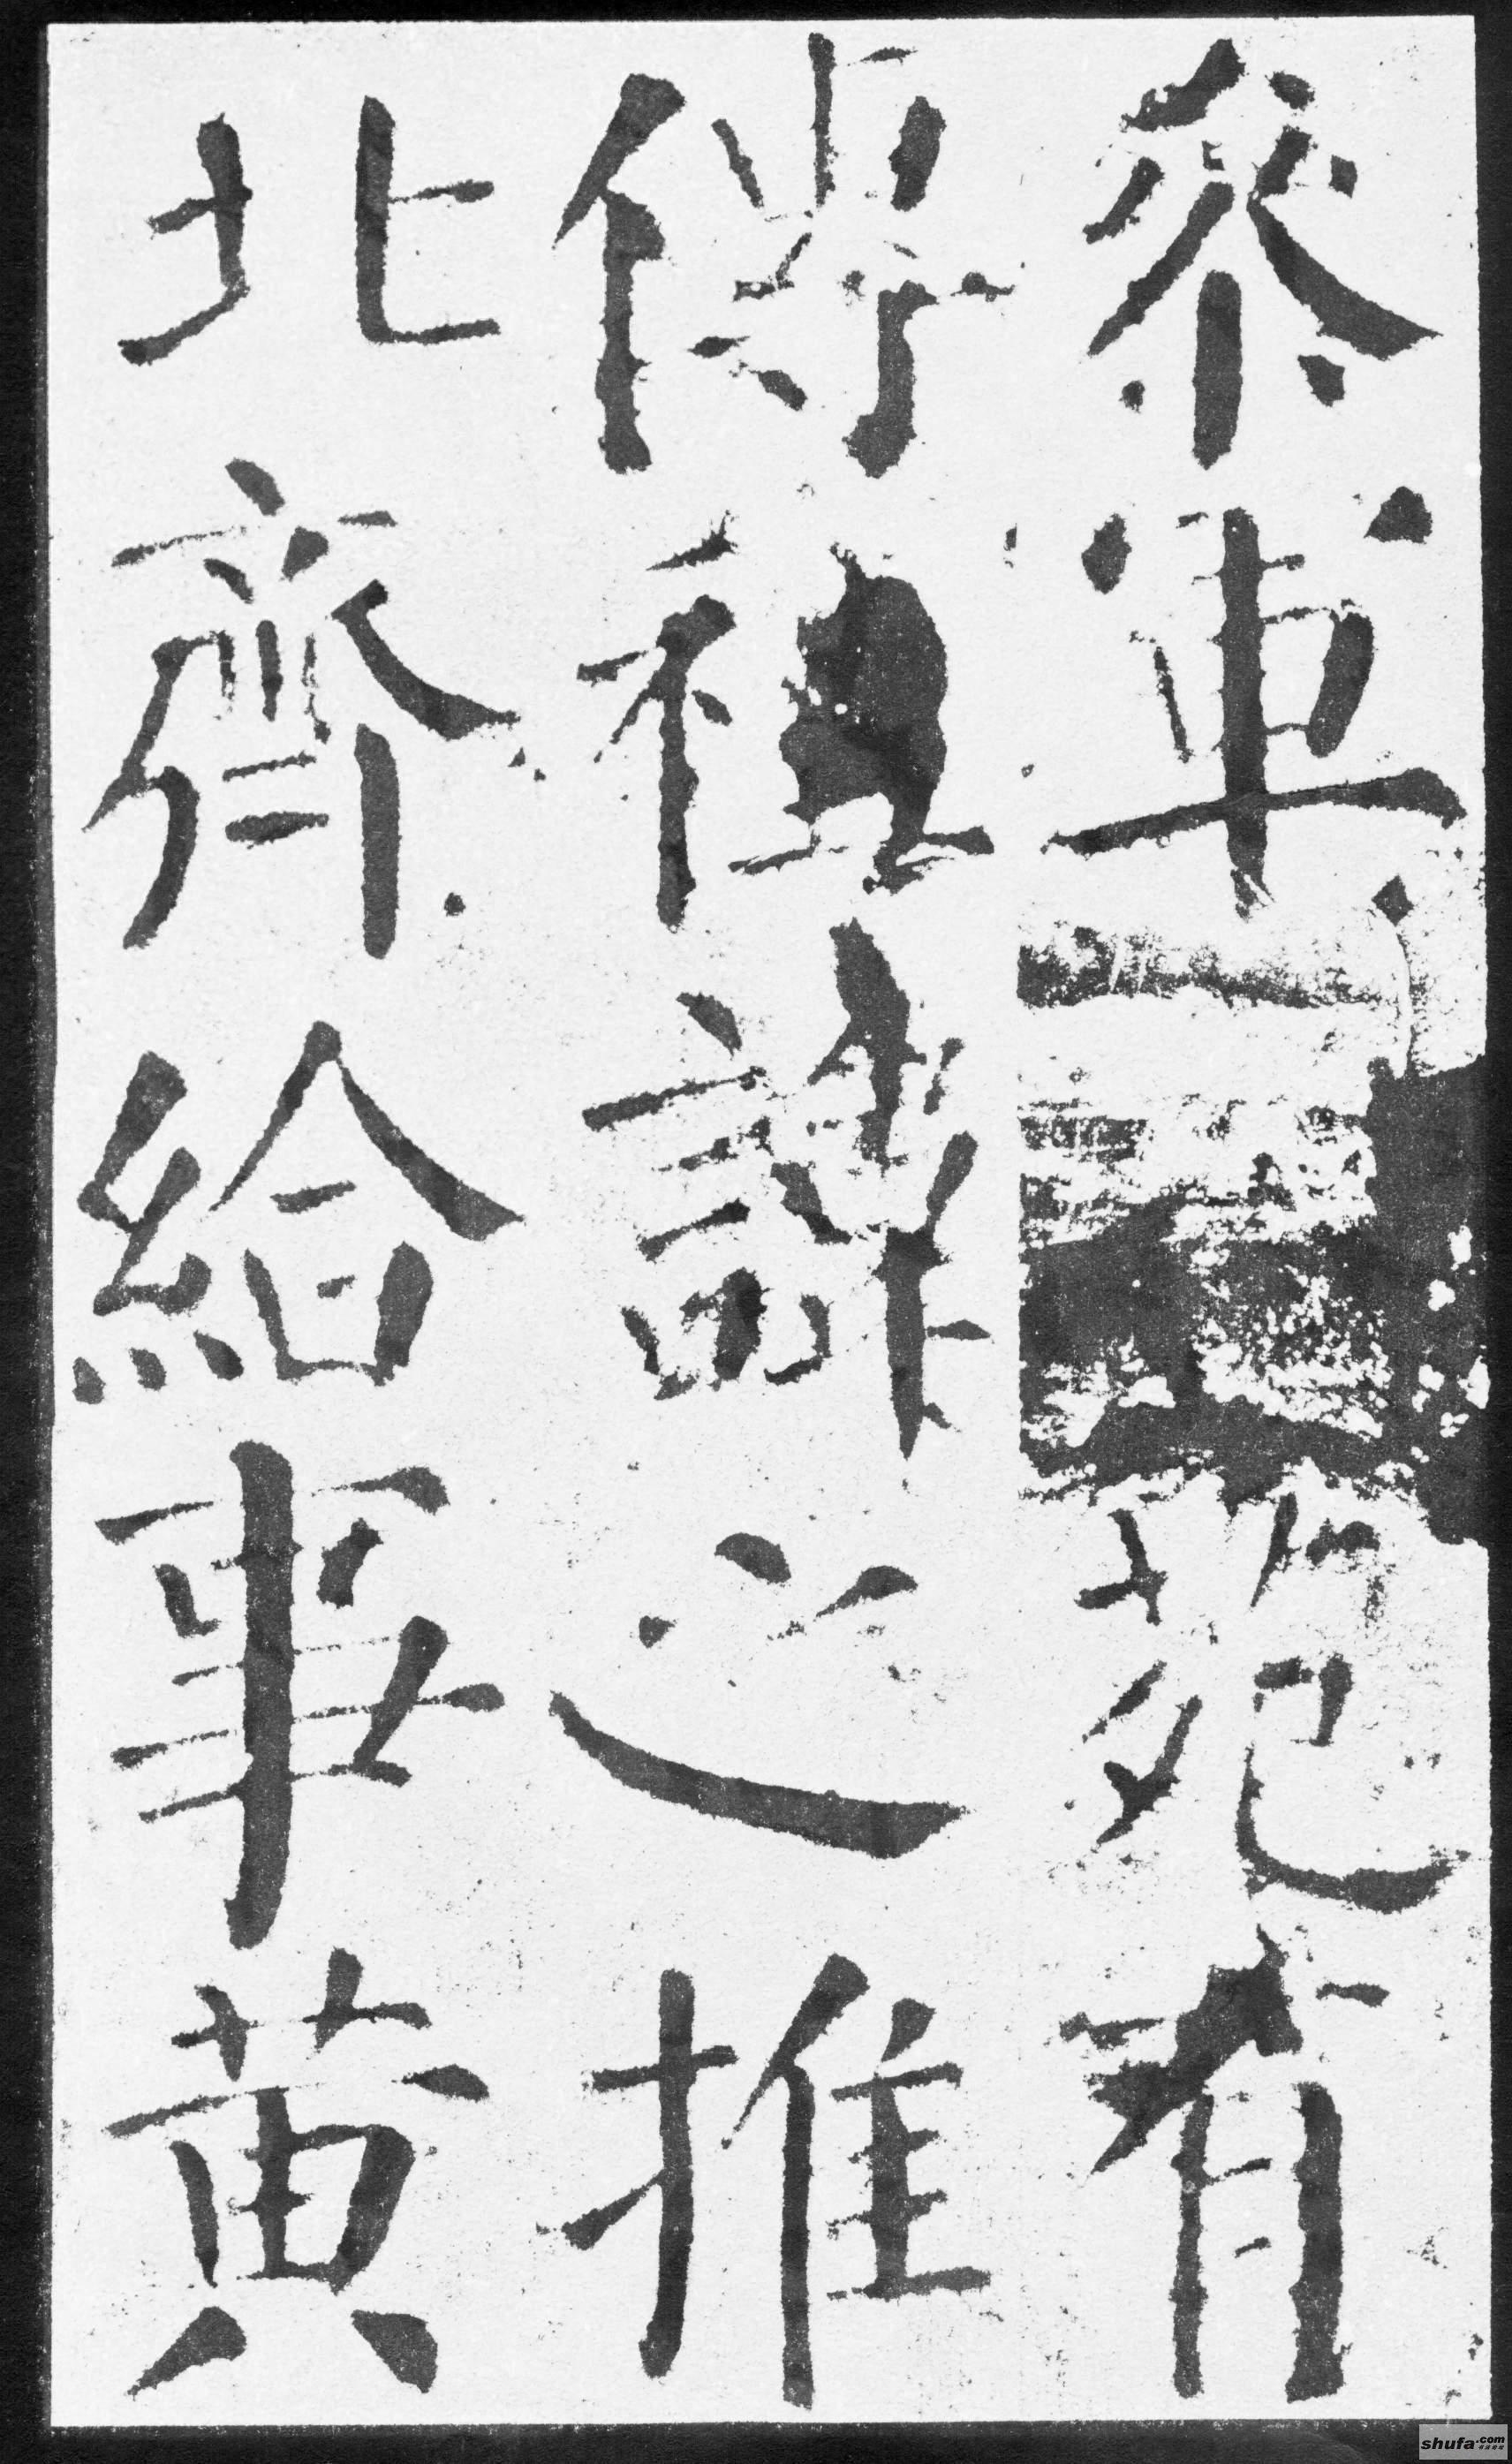 參軍苑有
傳祖諱之推
北齊給事黃
shufa.com